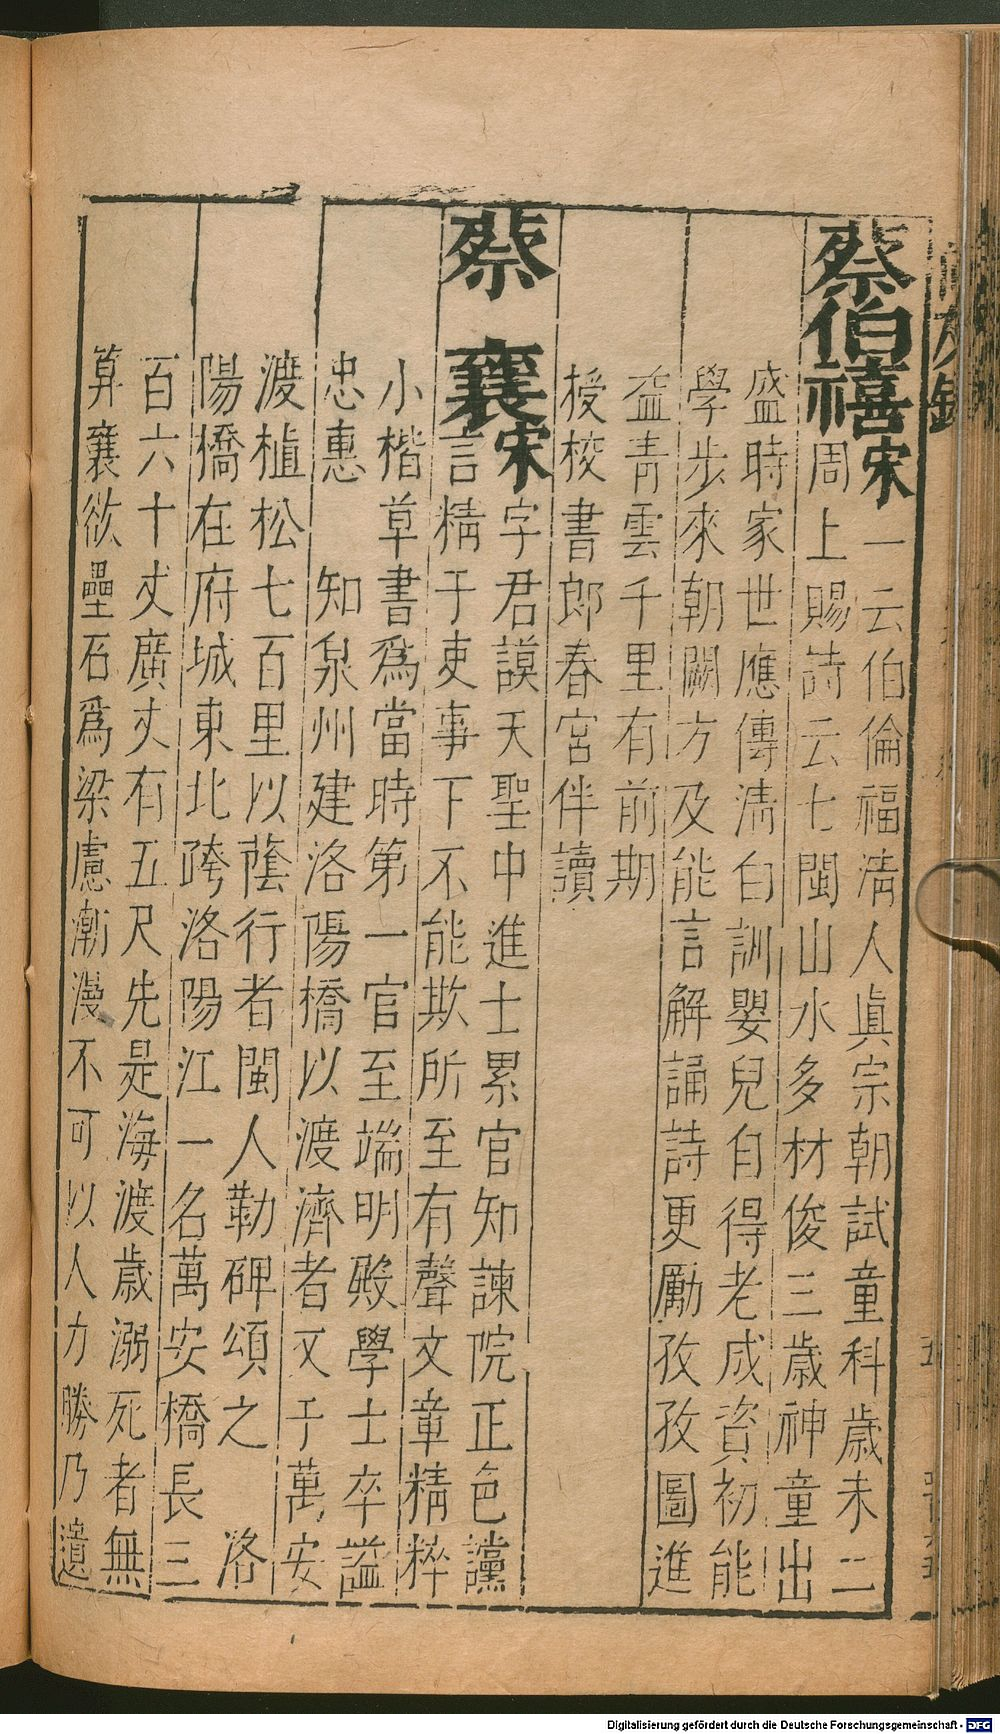 蔡伯禧宋一云伯倫福淸人眞宗朝試童科歲未二
周上賜詩云七閩山水多材俊三歲神童出
盛時家世應傳淸白訓嬰兒自得老成資初能
學步來朝闕方及能言解誦詩更勵孜孜圖進
益靑雲千里有前期
授校書郎春宮伴讀
蔡襄宋字君謨天聖中進士累官知諫院正色讜
言精于吏事下不能欺所至有聲文章精粹
小楷草書爲當時第一官至端明殿學士卒謚
忠惠 知泉州建洛陽橋以渡濟者又于萬安
渡植松七百里以蔭行者閩人勒碑頌之 洛
陽橋在府城東北跨洛陽江一名萬安橋長三
百六十丈廣丈有五尺先是海渡歲溺死者無
算襄欲壘石爲梁慮潮漫不可以人力勝乃遺
Digitalisierung gefördert durch die Deutsche Forschungsgemeinschaft - DFG